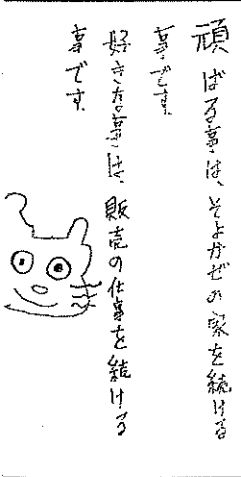 頑ばる事は、そよかぜの家を続ける
事です。
好きな事は、販売の仕事を続ける
事です。